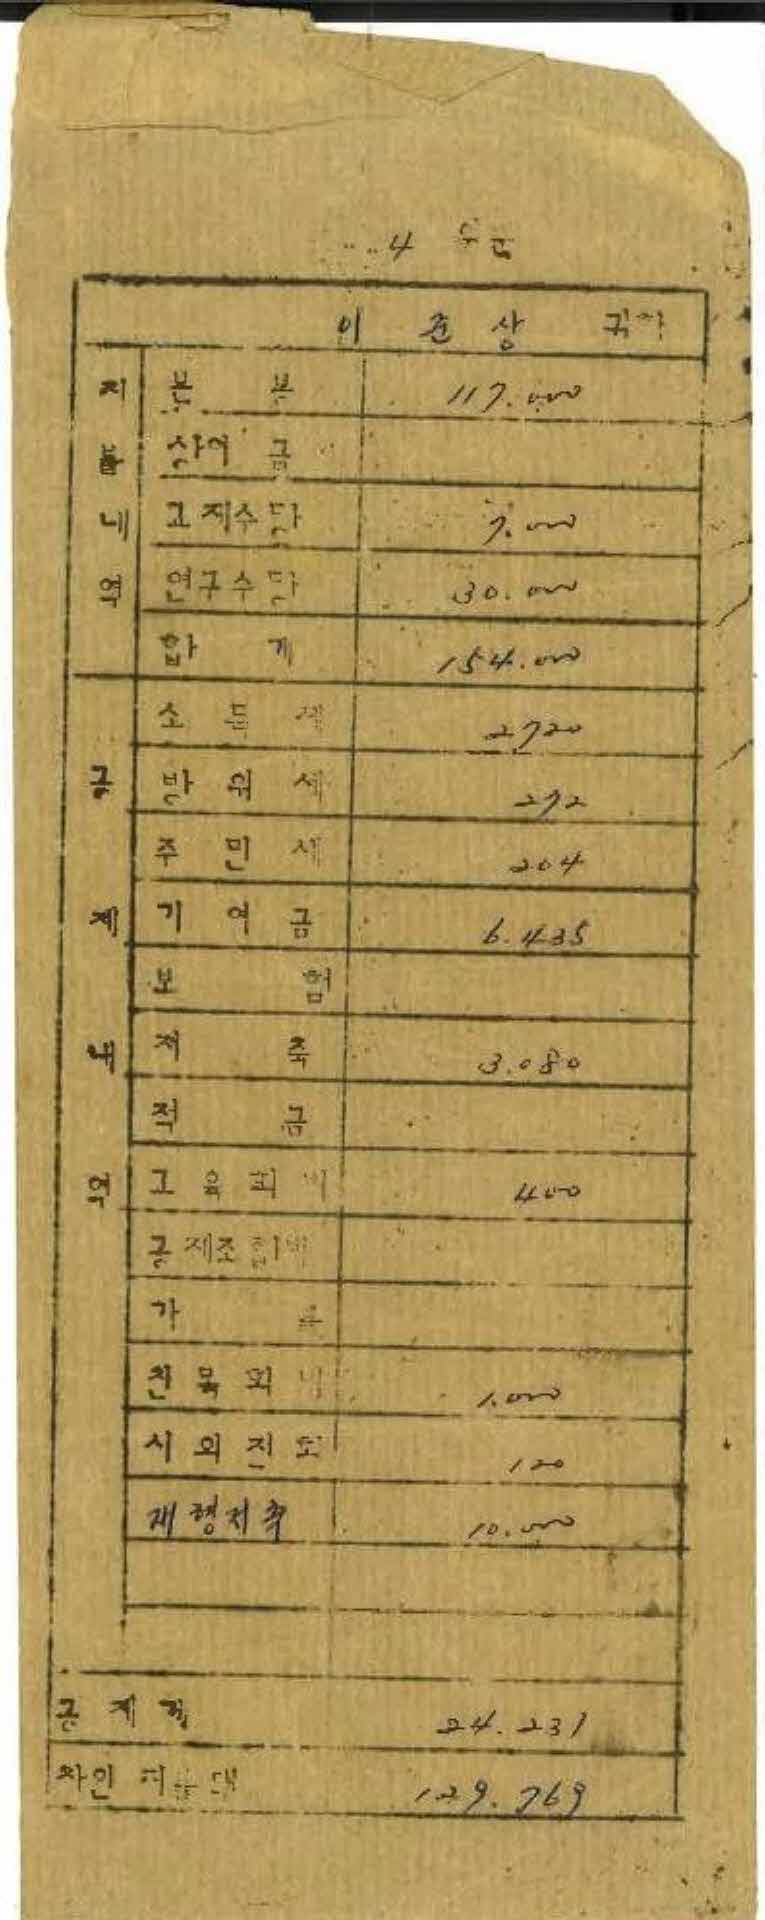 4 월분
이 준 상 귀하
지불내역
본 봉 117.000
상여금
교재수당 7.000
연구수당 30.000
합 계 154.000
공제내역
소 득 세 2720
방 위 세 272
주 민 세 204
기 여 금 6.435
보 험
저 축 3.080
적 금
교 육 회 비 400
공제조합비
가 불
친 목 회 비 1.000
시 외 전 화 120
재형저축 10.000
공 제 계 24.231
차인 지불액 129.769